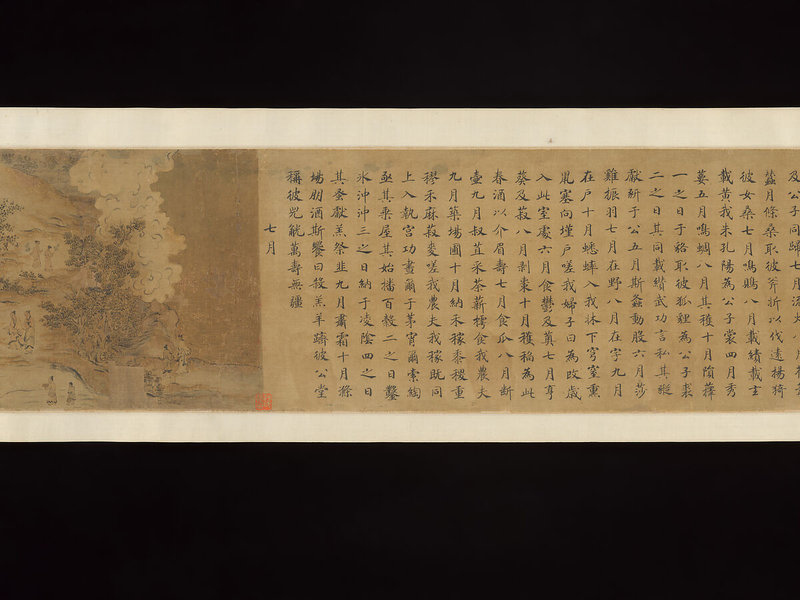 及公子同歸七月流火八月
蠶月條桑取彼斧斨以伐遠揚猗
彼女桑七月鳴鵙八月載績載玄
載黃我朱孔陽為公子裳四月秀
葽五月鳴蜩八月其穫十月隕蘀
一之日于貉取彼狐貍為公子裘
二之日其同載纘武功言私其豵
獻豜于公五月斯螽動股六月莎
雞振羽七月在野八月在宇九月
在戶十月蟋蟀入我牀下穹窒熏
鼠塞向墐戶嗟我婦子曰為改歲
入此室處六月食鬱及薁七月亨
葵及菽八月剝棗十月穫稻為此
春酒以介眉壽七月食瓜八月斷
壺九月叔苴采荼薪樗食我農夫
九月築場圃十月納禾稼黍稷重
穋禾麻菽麥嗟我農夫我稼既同
上入執宮功晝爾于茅宵爾索綯
亟其乘屋其始播百穀二之日鑿
冰沖沖三之日納于凌陰四之日
其蚤獻羔祭韭九月肅霜十月滌
場朋酒斯饗曰殺羔羊躋彼公堂
稱彼兕觥萬壽無疆
七月